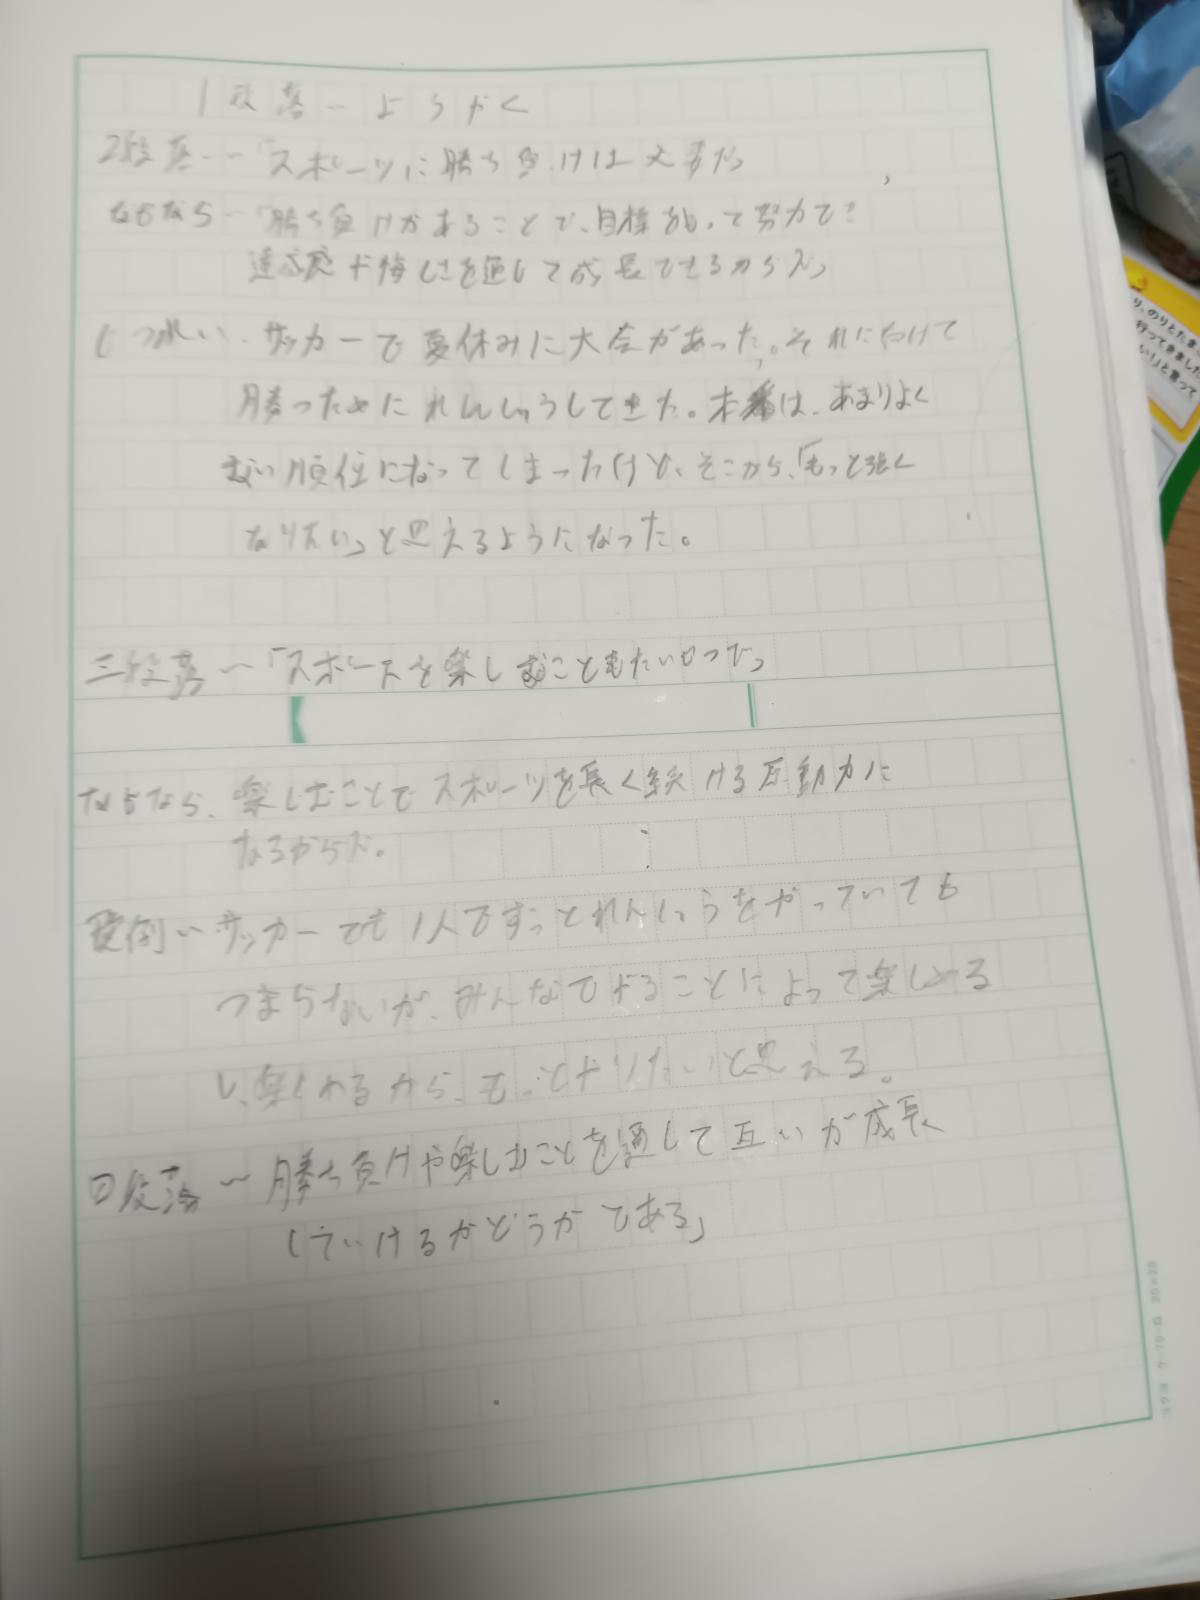 1段落〜ようやく
2段落〜「スポーツに勝ち負けは大事だ」
なぜなら〜「勝ち負けがあることで、目標をもって努力でき
達成感や悔しさを通して成長できるからだ」
じつれい、サッカーで夏休みに大会があった。それにむけて
勝つためにれんしゅうしてきた。本番は、あまりよく
ない順位になってしまったけど、そこから、「もっと強く
なりたい」と思えるようになった。
三段落〜「スポーツを楽しむこともたいせつだ」
なぜなら、楽しむことでスポーツを長く続ける原動力に
なるからだ。
実例〜サッカーでも1人でずっとれんしゅうをやっていても
つまらないが、みんなでやることによって楽しめる
し、楽しめるから、もっとやりたいと思える。
四段落〜勝ち負けや楽しむことを通して互いが成長
していけるかどうかである」
り、のりとたま
行ってきました
い!」と言って
20×20